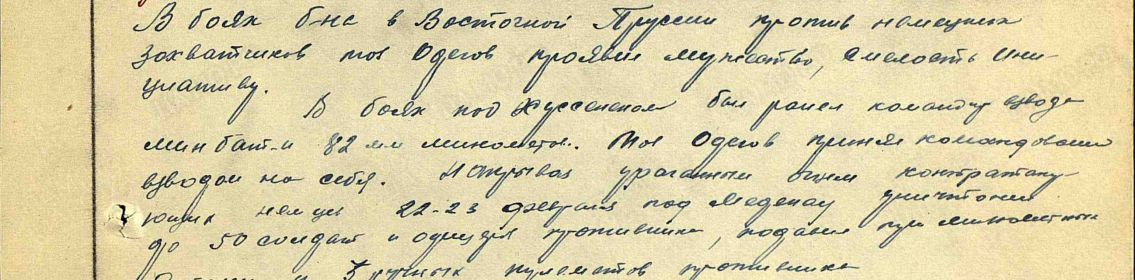 В боях б-на в Восточной Пруссии против немецких
захватчиков тов Одегов проявил мужество, смелость ини-
циативу.
В боях под был ранен командир взвода
минбат-и 82 мм минометов. Тов Одегов принял командование
взводом на себя. Накрывая ураганным огнем контратаку-
ющих немцев 22-23 февраля под Меденау уничтожил
до 50 солдат и офицеров противника, подавил три минометных
и 3 ручных пулеметов противника